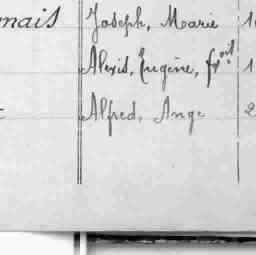 mais Joseph, Marie 1
Alexis, Eugène, fr^ois 1
Alfred, Ange 2